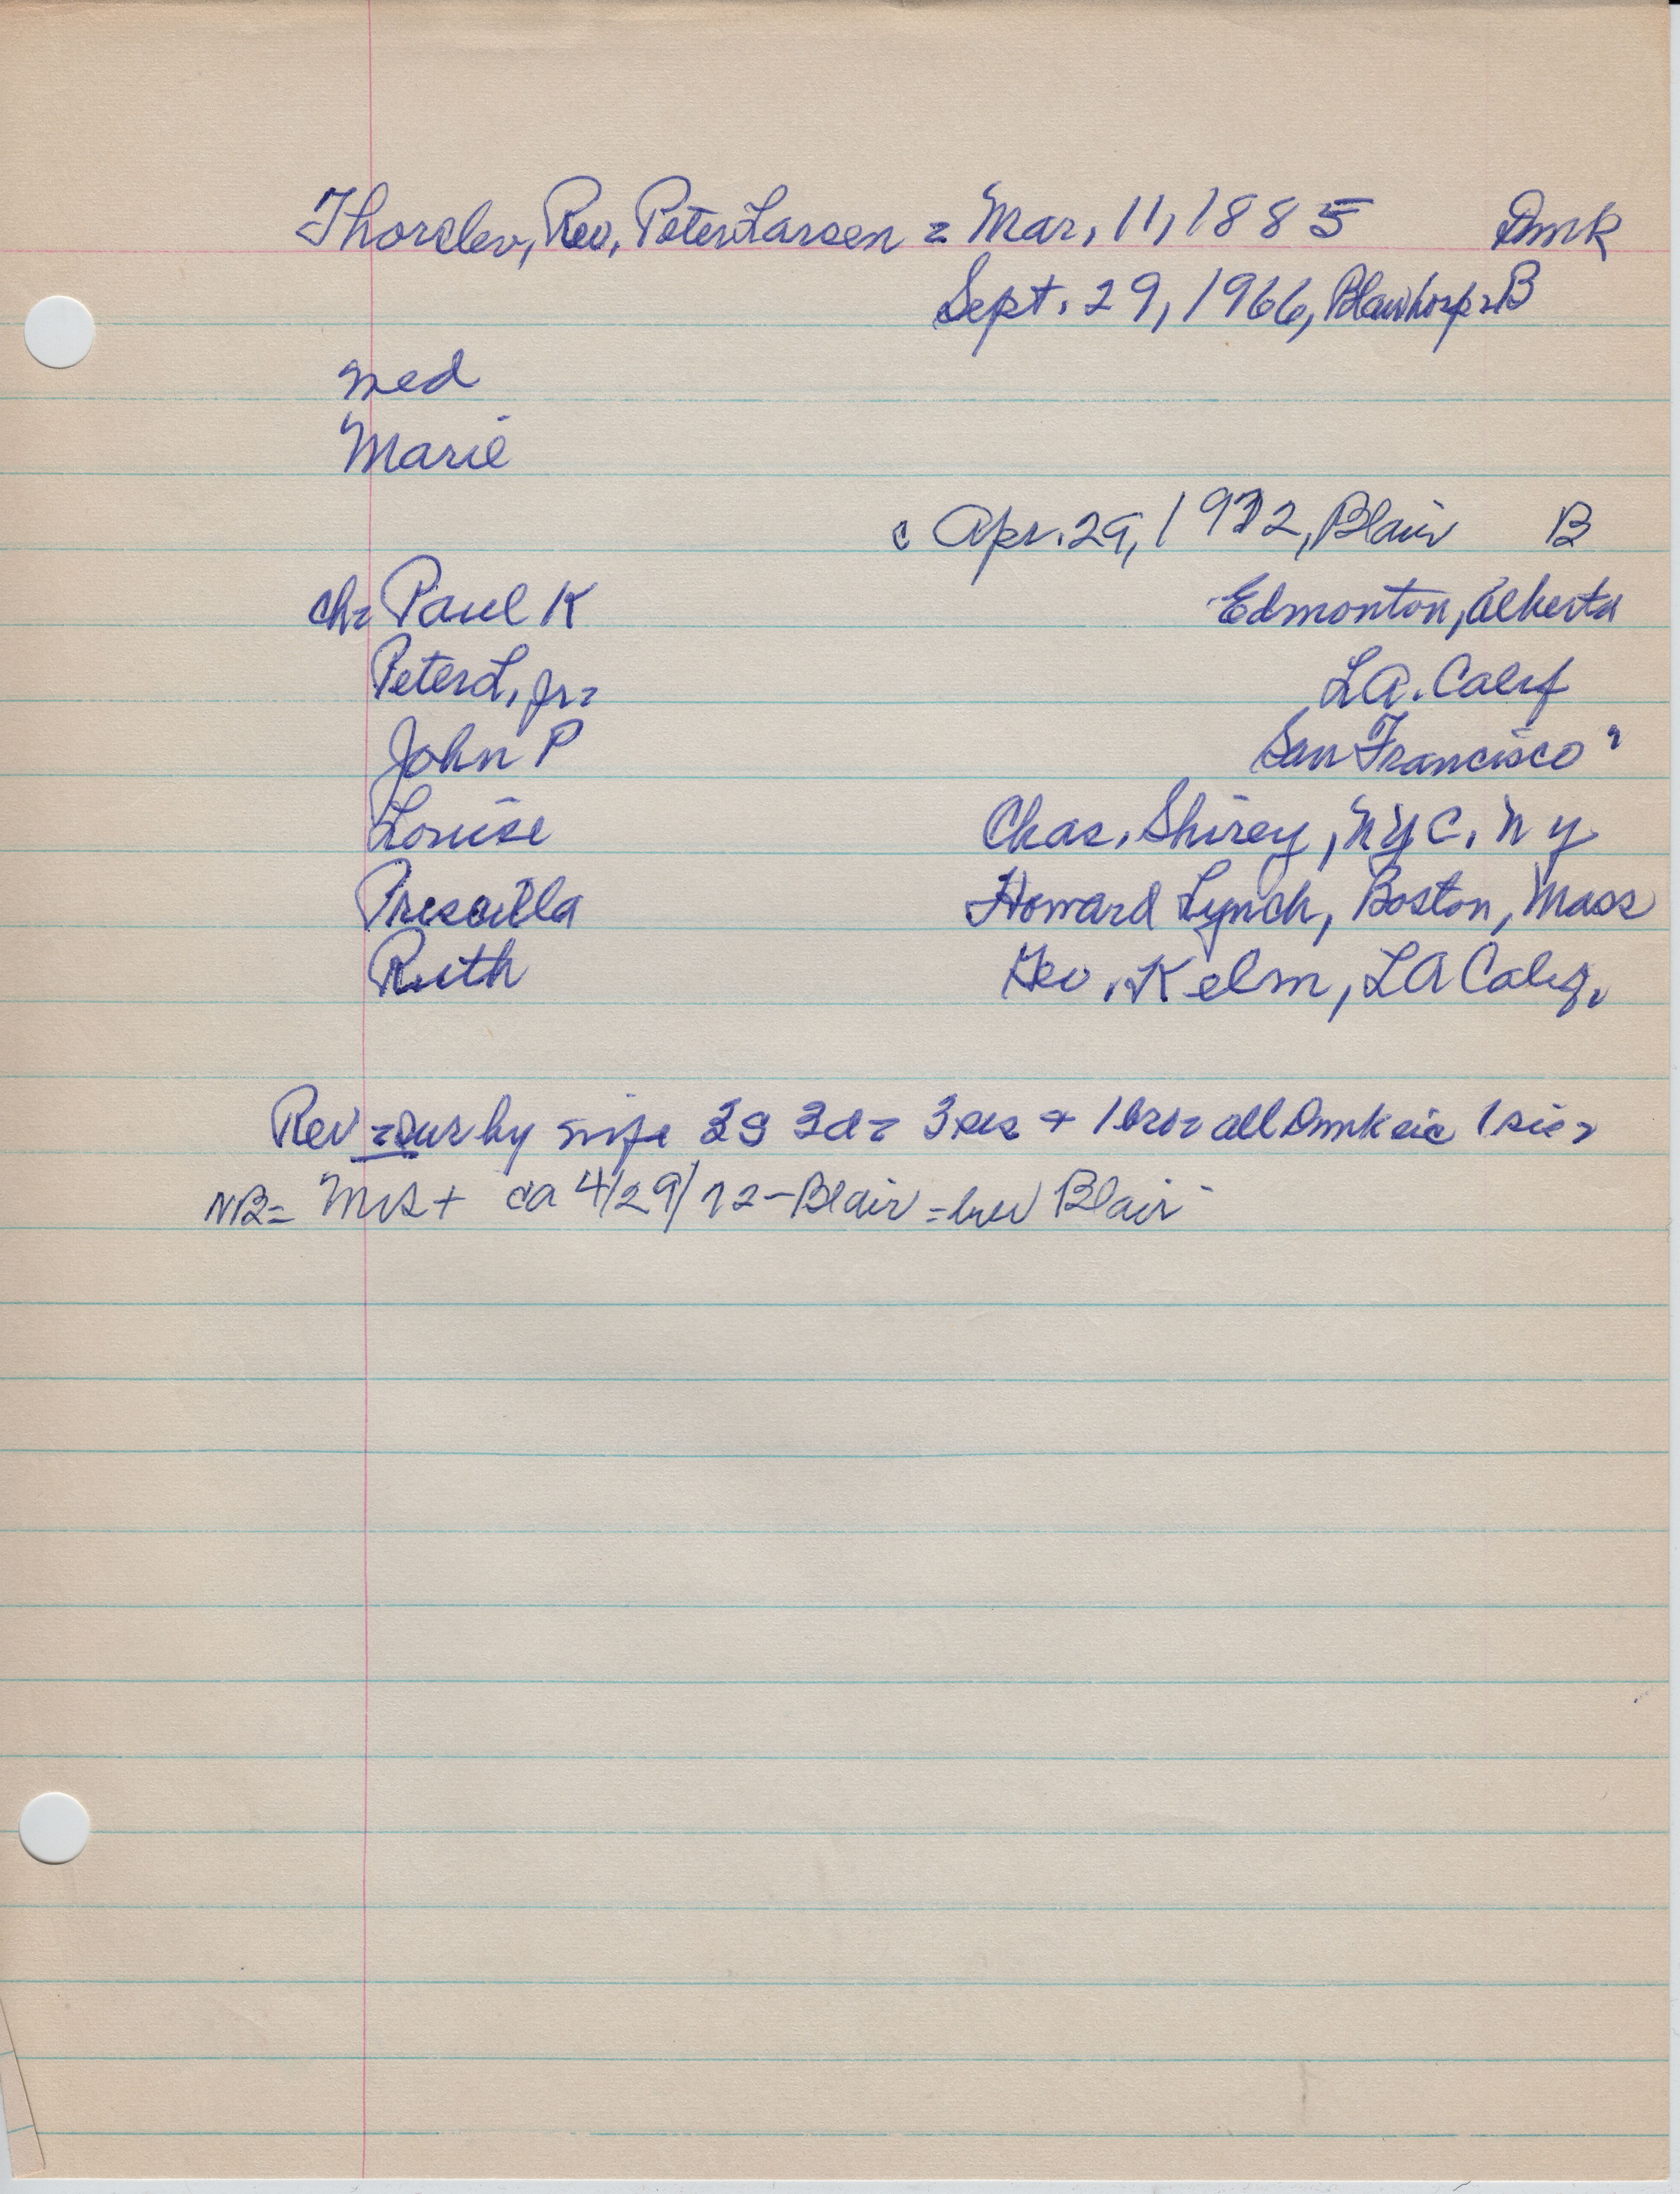 Thorslev, Rev. Peter Larsen = Mar. 11, 1885 Dmk
Sept. 29, 1966, Blair hosp = B
med
Marie
c Apr. 29, 1972, Blair B
ch = Paul K Edmonton, Alberta
Peter L, Jr = LA. Calif
John P San Francisco "
Louise Chas. Shirey, NYC. NY
Prescilla Howard Lynch, Boston, Mass
Ruth Geo. Kelm, LA Calif.
Rev = sur by wife 3s 3d = 3 sis + 1 bro = all Dmk 1 sis =
NB = Mrs + ca 4/29/72 - Blair = bur Blair